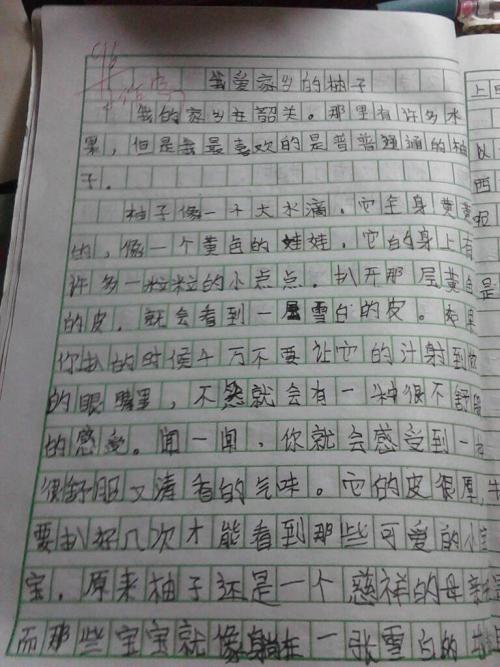 我爱家乡的柚子
我的家乡在韶关。那里有许多水
果，但是我最喜欢的是普普通通的柚
子。
柚子像一个大水滴。它全身黄黄
的，像一个黄色的娃娃，它的身上有
许多一粒粒的小点点。扒开那层黄色
的皮，就会看到一层雪白的皮。如果
你扒的时候千万不要让它的汁射到你
的眼睛里，不然就会有一种很不舒服
的感受。闻一闻，你就会感受到一
很舒服又清香的气味。它的皮很厚，
要扒好几次才能看到那些可爱的小宝
宝。原来柚子还是一个慈祥的母亲
而那些宝宝就像躺在一张雪白的